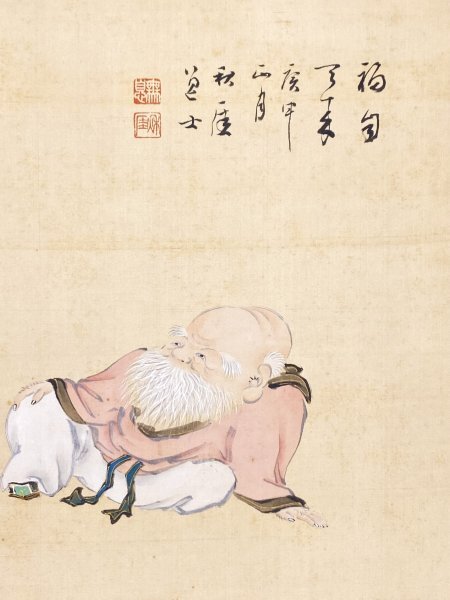 福自
天来
庚申
正月
秋厓
道士